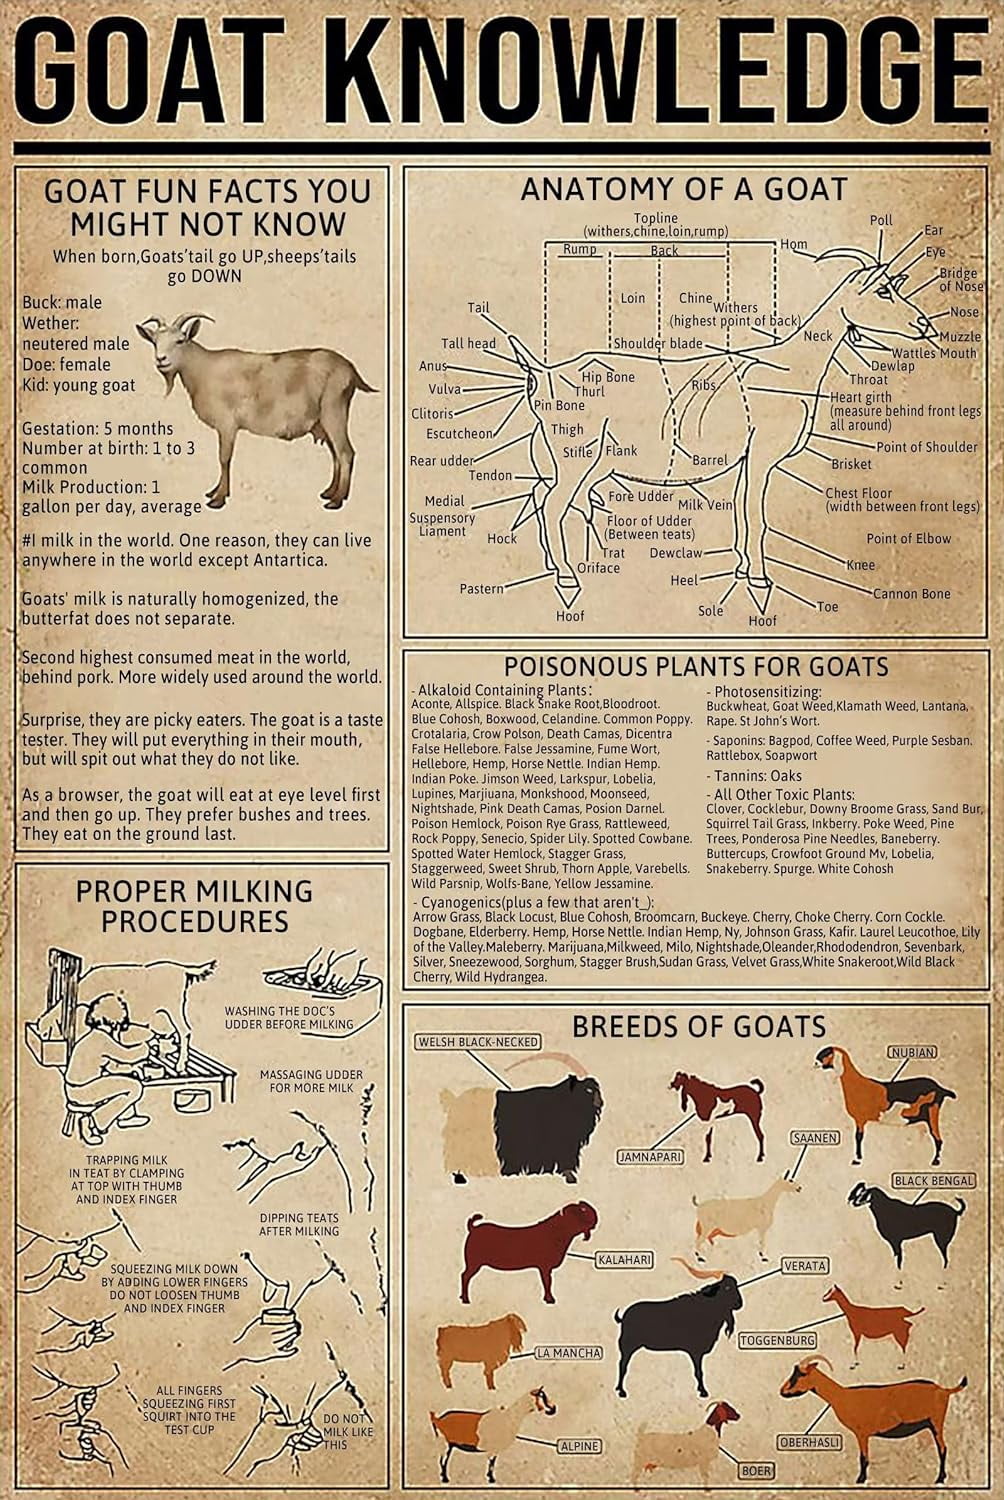 GOAT KNOWLEDGE
GOAT FUN FACTS YOU
MIGHT NOT KNOW
When born,Goats'tail go UP,sheeps'tails
go DOWN
Buck: male
Wether:
neutered male
Doe: female
Kid: young goat
Gestation: 5 months
Number at birth: 1 to 3
common
Milk Production: 1
gallon per day, average
#I milk in the world. One reason, they can live
anywhere in the world except Antartica.
Goats' milk is naturally homogenized, the
butterfat does not separate.
Second highest consumed meat in the world,
behind pork. More widely used around the world.
Surprise, they are picky eaters. The goat is a taste
tester. They will put everything in their mouth,
but will spit out what they do not like.
As a browser, the goat will eat at eye level first
and then go up. They prefer bushes and trees.
They eat on the ground last.
ANATOMY OF A GOAT
Topline
(withers,chine,loin,rump)
Rump
Back
Hom
Poll
Ear
Eye
Bridge
of Nose
Nose
Muzzle
Wattles Mouth
Dewlap
Throat
Neck
Loin
Chine
Withers
(highest point of back)
Shoulder blade
Tail
Tall head
Anus
Vulva
Clitoris
Escutcheon
Rear udder
Tendon
Medial
Suspensory
Liament
Hock
Pastern
Hoof
Hip Bone
Thurl
Pin Bone
Thigh
Stifle
Flank
Ribs
Barrel
Fore Udder
Milk Vein
Floor of Udder
(Between teats)
Trat
Oriface
Dewclaw
Heel
Sole
Hoof
Toe
Heart girth
(measure behind front legs
all around)
Point of Shoulder
Brisket
Chest Floor
(width between front legs)
Point of Elbow
Knee
Cannon Bone
POISONOUS PLANTS FOR GOATS
- Alkaloid Containing Plants:
Aconte, Allspice. Black Snake Root,Bloodroot.
Blue Cohosh, Boxwood, Celandine. Common Poppy.
Crotalaria, Crow Polson, Death Camas, Dicentra
False Hellebore. False Jessamine, Fume Wort,
Hellebore, Hemp, Horse Nettle. Indian Hemp.
Indian Poke. Jimson Weed, Larkspur, Lobelia,
Lupines, Marjiuana, Monkshood, Moonseed,
Nightshade, Pink Death Camas, Posion Darnel.
Poison Hemlock, Poison Rye Grass, Rattleweed,
Rock Poppy, Senecio, Spider Lily. Spotted Cowbane.
Spotted Water Hemlock, Stagger Grass,
Staggerweed, Sweet Shrub, Thorn Apple, Varebells.
Wild Parsnip, Wolfs-Bane, Yellow Jessamine.
- Photosensitizing:
Buckwheat, Goat Weed,Klamath Weed, Lantana,
Rape. St John's Wort.
- Saponins: Bagpod, Coffee Weed, Purple Sesban.
Rattlebox, Soapwort
- Tannins: Oaks
- All Other Toxic Plants:
Clover, Cocklebur, Downy Broome Grass, Sand Bur,
Squirrel Tail Grass, Inkberry. Poke Weed, Pine
Trees, Ponderosa Pine Needles, Baneberry.
Buttercups, Crowfoot Ground Mv, Lobelia,
Snakeberry. Spurge. White Cohosh
- Cyanogenics(plus a few that aren't_):
Arrow Grass, Black Locust, Blue Cohosh, Broomcarn, Buckeye. Cherry, Choke Cherry. Corn Cockle.
Dogbane, Elderberry. Hemp, Horse Nettle. Indian Hemp, Ny, Johnson Grass, Kafir. Laurel Leucothoe, Lily
of the Valley.Maleberry. Marijuana,Milkweed, Milo, Nightshade,Oleander,Rhododendron, Sevenbark,
Silver, Sneezewood, Sorghum, Stagger Brush,Sudan Grass, Velvet Grass,White Snakeroot,Wild Black
Cherry, Wild Hydrangea.
PROPER MILKING
PROCEDURES
WASHING THE DOC'S
UDDER BEFORE MILKING
MASSAGING UDDER
FOR MORE MILK
TRAPPING MILK
IN TEAT BY CLAMPING
AT TOP WITH THUMB
AND INDEX FINGER
DIPPING TEATS
AFTER MILKING
SQUEEZING MILK DOWN
BY ADDING LOWER FINGERS
DO NOT LOOSEN THUMB
AND INDEX FINGER
ALL FINGERS
SQUEEZING FIRST
SQUIRT INTO THE
TEST CUP
DO NOT
MILK LIKE
THIS
BREEDS OF GOATS
WELSH BLACK-NECKED
NUBIAN
JAMNAPARI
SAANEN
BLACK BENGAL
KALAHARI
VERATA
TOGGENBURG
LA MANCHA
ALPINE
BOER
OBERHASLI